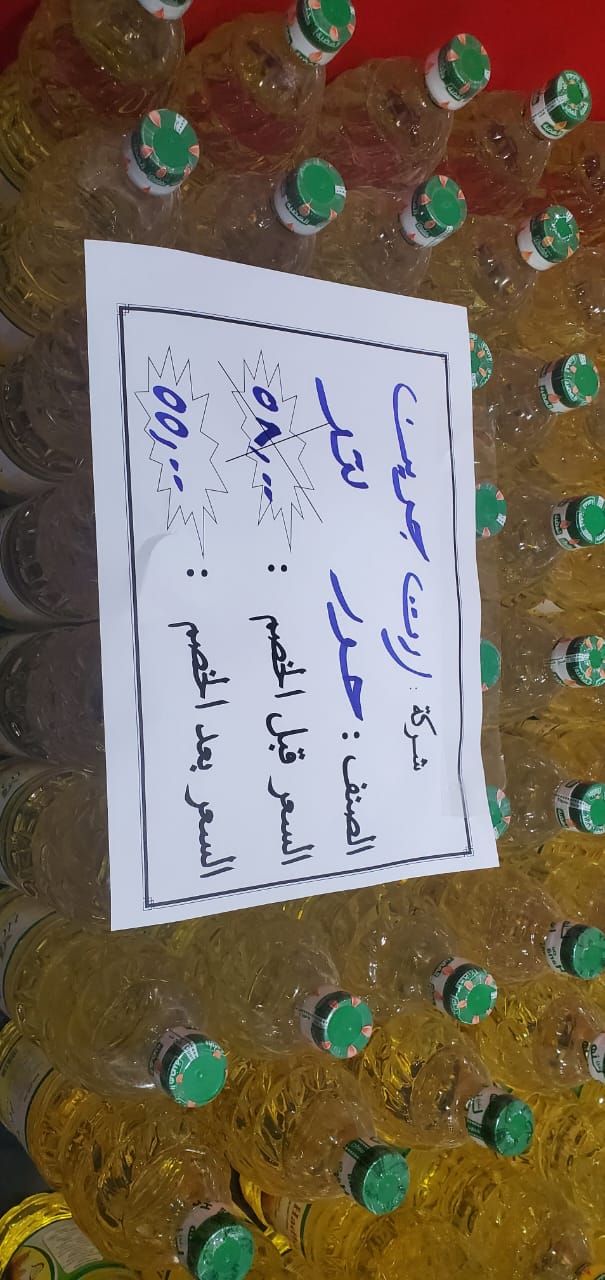 شركة : زيت جرين
الصنف : لتر
السعر قبل الخصم : ٥٨,٠٠
السعر بعد الخصم : ٥٥,٠٠